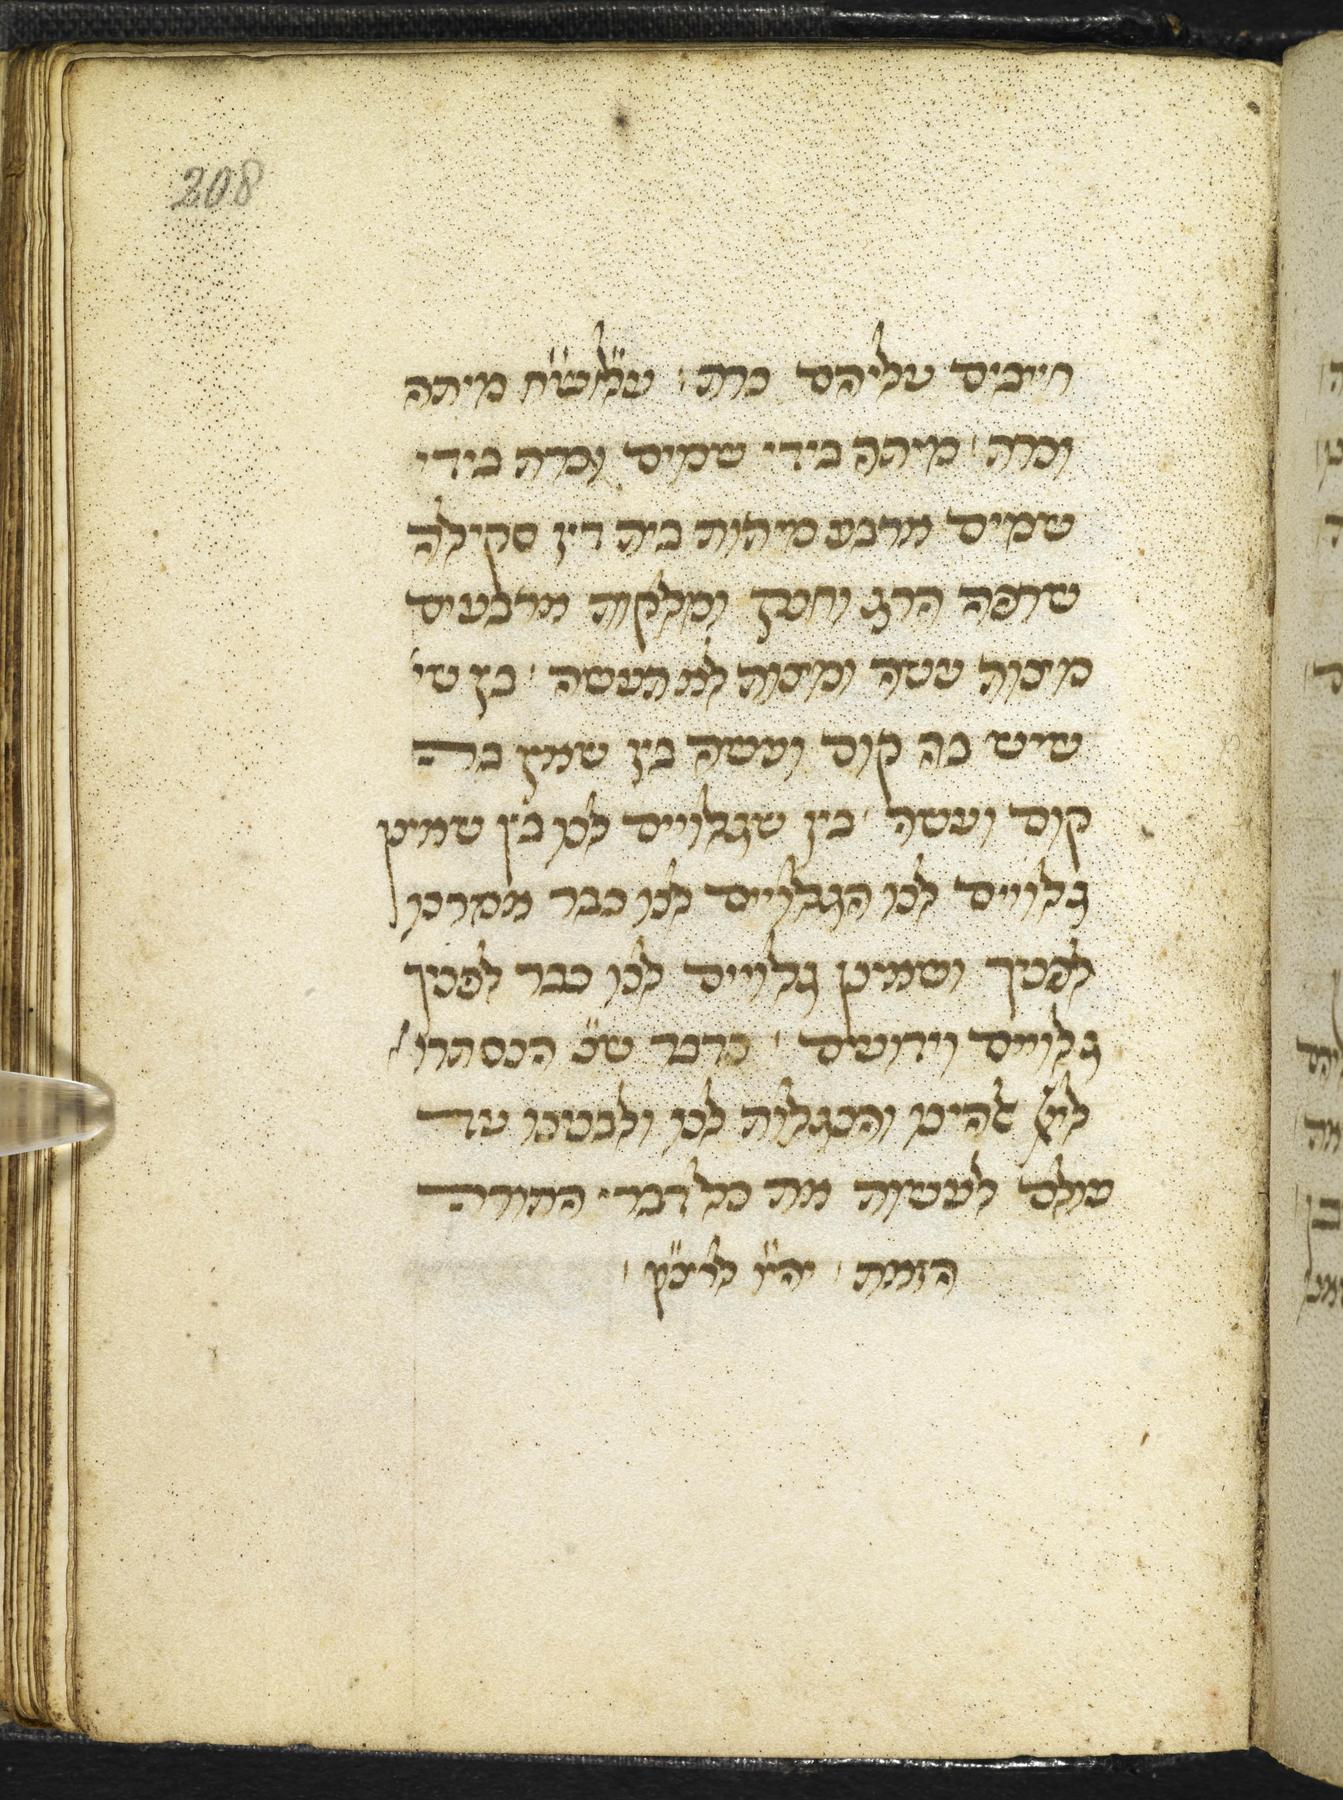 208
חייבים עליהם כרת : עח״שא״ח מיתה
וכרת , מיתה בידי שמים וכרת בידי
שמים וארבע מיתות בית דין סקילה
שרפה הרג וחנק ומלקות וארבעים
מצות עשה ומצות לא תעשה : בין שי׳
שיש בה קום ועשה בין שאין בה
קום ועשה , בין שגלויים לנו בין שאינן
גלויים לנו הגלויים לנו כבר אמרנון
לפניך ושאינן גלויים לנו כבר לפניך
גלויים וידועים , כדבר שנ׳ הנסתרו׳
ליי׳ אלהינו והנגלות לנו ולבנינו עד
עולם לעשות את כל דברי התורה
הזאת , יהי״ו לרצ״ון ,